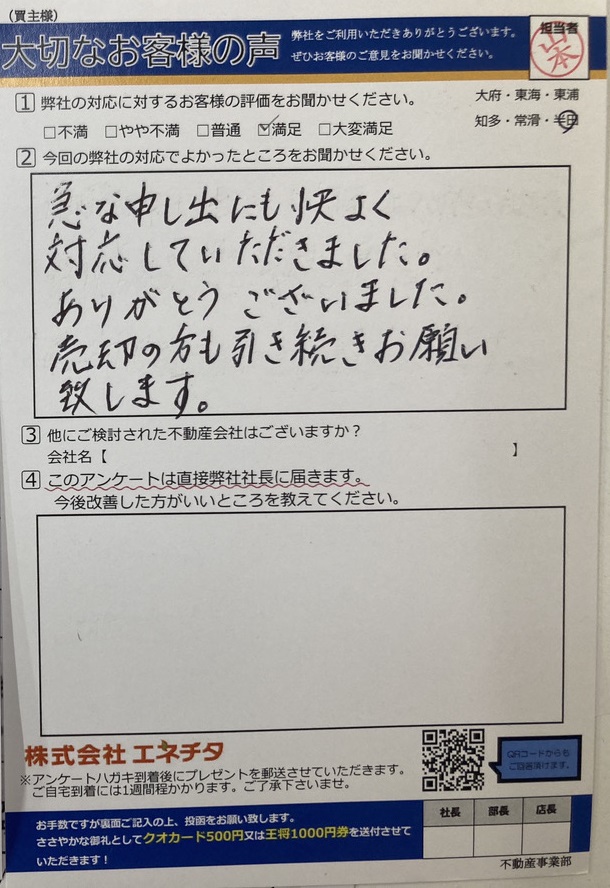 (買主様)
大切なお客様の声
弊社をご利用いただきありがとうございます。
ぜひお客様のご意見をお聞かせください。
担当者
山本
1 弊社の対応に対するお客様の評価をお聞かせください。
大府・東海・東浦
知多・常滑・半田
□不満 □やや不満 □普通 ☑満足 □大変満足
2 今回の弊社の対応でよかったところをお聞かせください。
急な申し出にも快よく
対応していただきました。
ありがとうございました。
売却の方も引き続きお願い
致します。
3 他にご検討された不動産会社はございますか？
会社名【 】
4 このアンケートは直接弊社社長に届きます。
今後改善した方がいいところを教えてください。
株式会社 エネチタ
※アンケートハガキ到着後にプレゼントを郵送させていただきます。
ご自宅到着には1週間程かかります。ご了承下さいませ。
QRコードからも
ご回答頂けます。
お手数ですが裏面ご記入の上、投函をお願い致します。
ささやかな御礼としてクオカード500円又は王将1000円券を送付させて
いただきます！
社長 部長 店長
不動産事業部